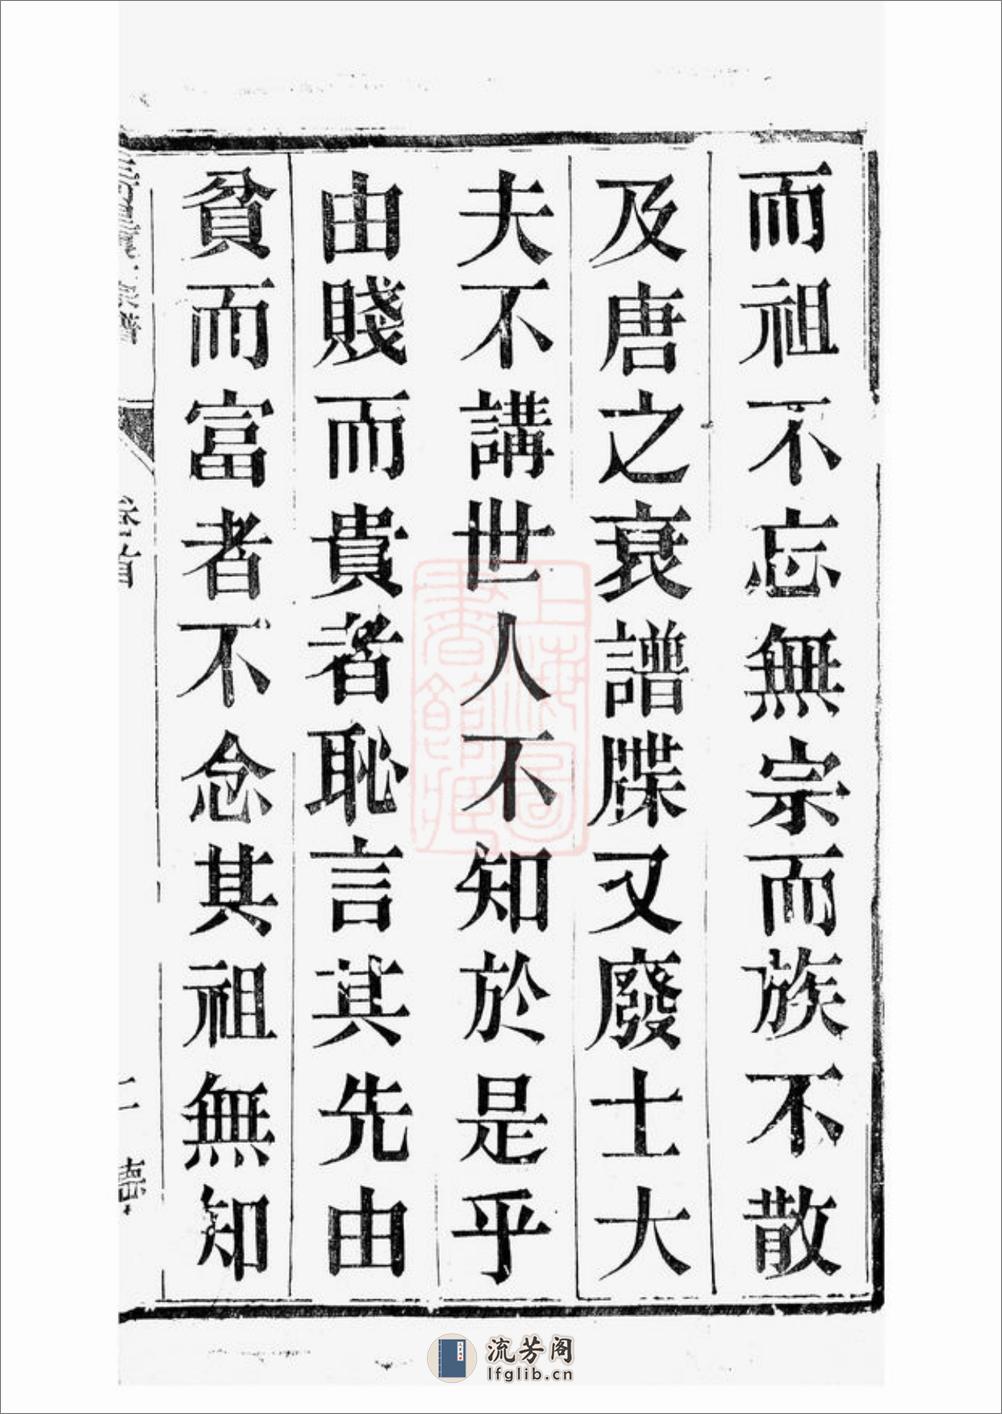 而祖不忘無宗而族不散
及唐之衰譜牒又廢士大
夫不講世人不知於是乎
由賤而貴者恥言其先由
貧而富者不念其祖無知
卷首
上海圖書館藏
流芳阁
lfglib.cn